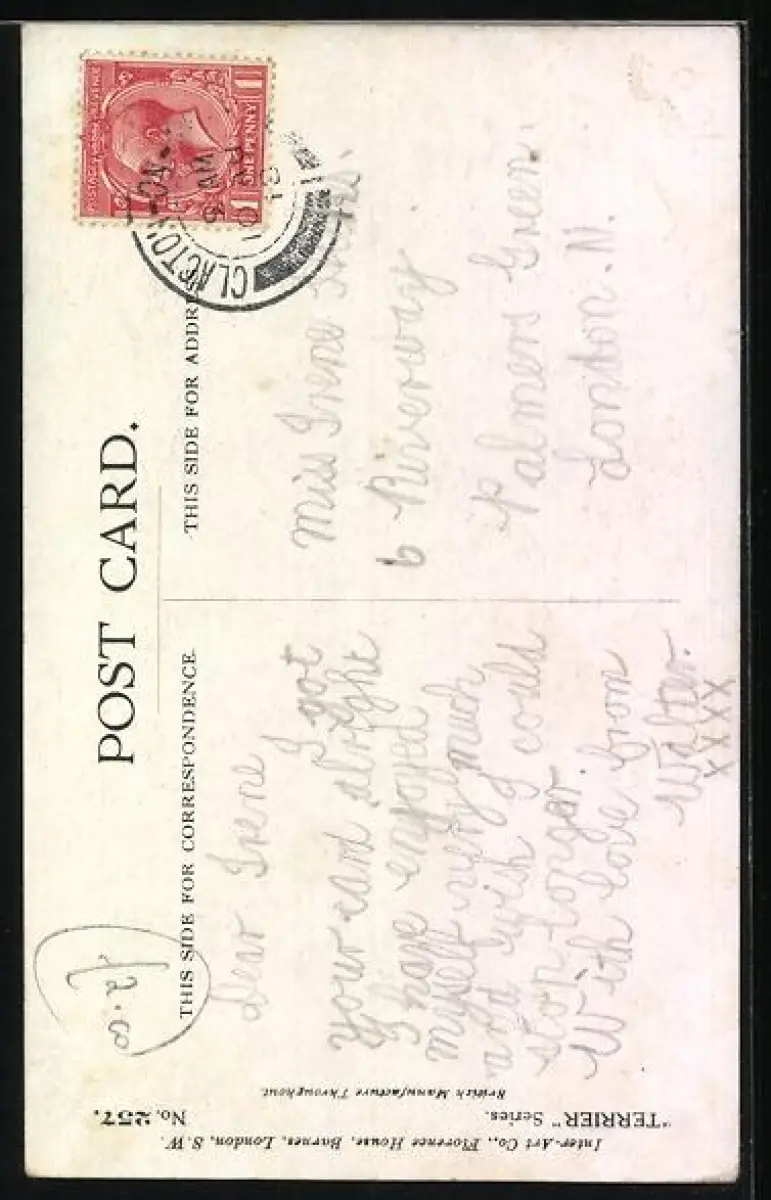 POST CARD.
THIS SIDE FOR CORRESPONDENCE.
THIS SIDE FOR ADDRE
POSTAGE REVENUE
1 ONE PENNY 1
CLACTON-ON-
Dear Irene
I got
your card alright
I have enjoyed
myself very much
and wish I could
stop longer.
With love from
Walter.
xxxx
Miss Irene
6 Riverway
Palmers Green.
London. N.
"TERRIER" Series. No. 257.
British Manufacture Throughout.
Inter-Art Co., Florence House, Barnes, London, S.W.